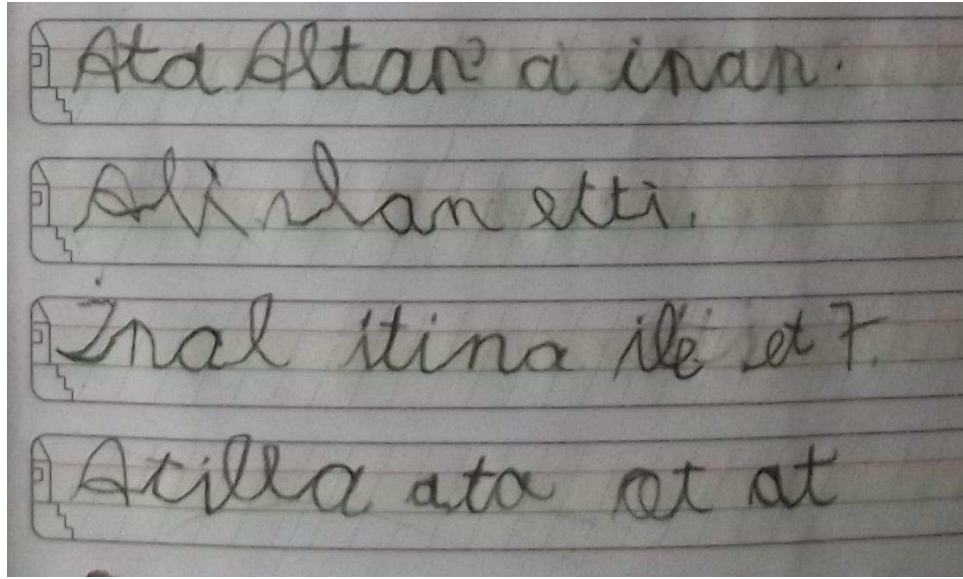 Ata Altan'a inan.
Ali ilan etti.
İnal itina ile et
Atilla ata ot at